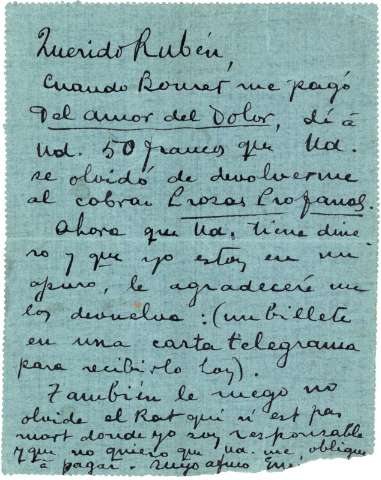 Querido Rubén,
Cuando Bouret me pagó
Del amor del Dolor, dí à
Ud. 50 francos que Ud.
se olvidó de devolverme
al cobrar Prosas Profanas.
Ahora que Ud. tiene dine-
ro y que yo estoy en un
apuro, le agradeceré me
los devuelva: (un billete
en una carta telegrama
para recibirlo hoy).
También le ruego no
olvide el Rat qui n'est pas
mort donde yo soy responsable
y que no quiero que Ud. me oblique
à pagar. Suyo afmo